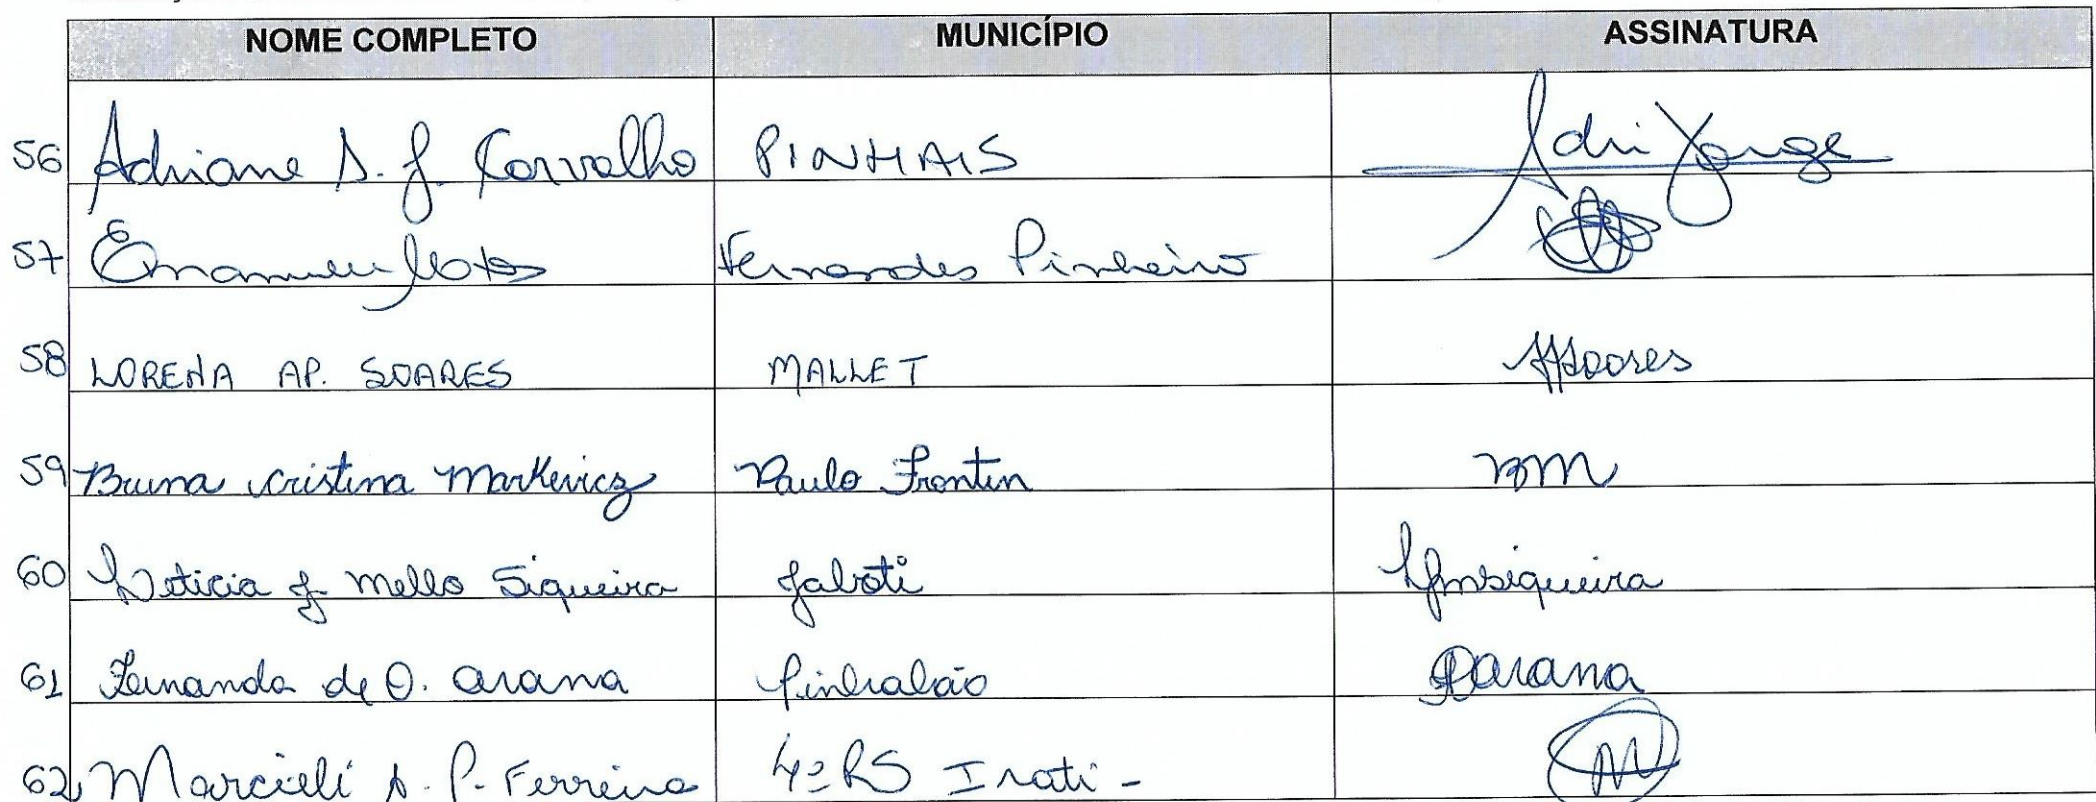 NOME COMPLETO MUNICÍPIO ASSINATURA
56 Adriane S. J. Carvalho PINHAIS Adri Jorge
57 Fernandes Pinheiro
58 LORENA AP. SOARES MALLET
59 Bruna Cristina Markevicz Paulo Frontin BM
60 Leticia J Mello Siqueira Jaboti LJMSiqueira
61 Fernanda de O. Arana Pinhalão
62 Marcieli A. P. Ferreira 4ª RS Irati -